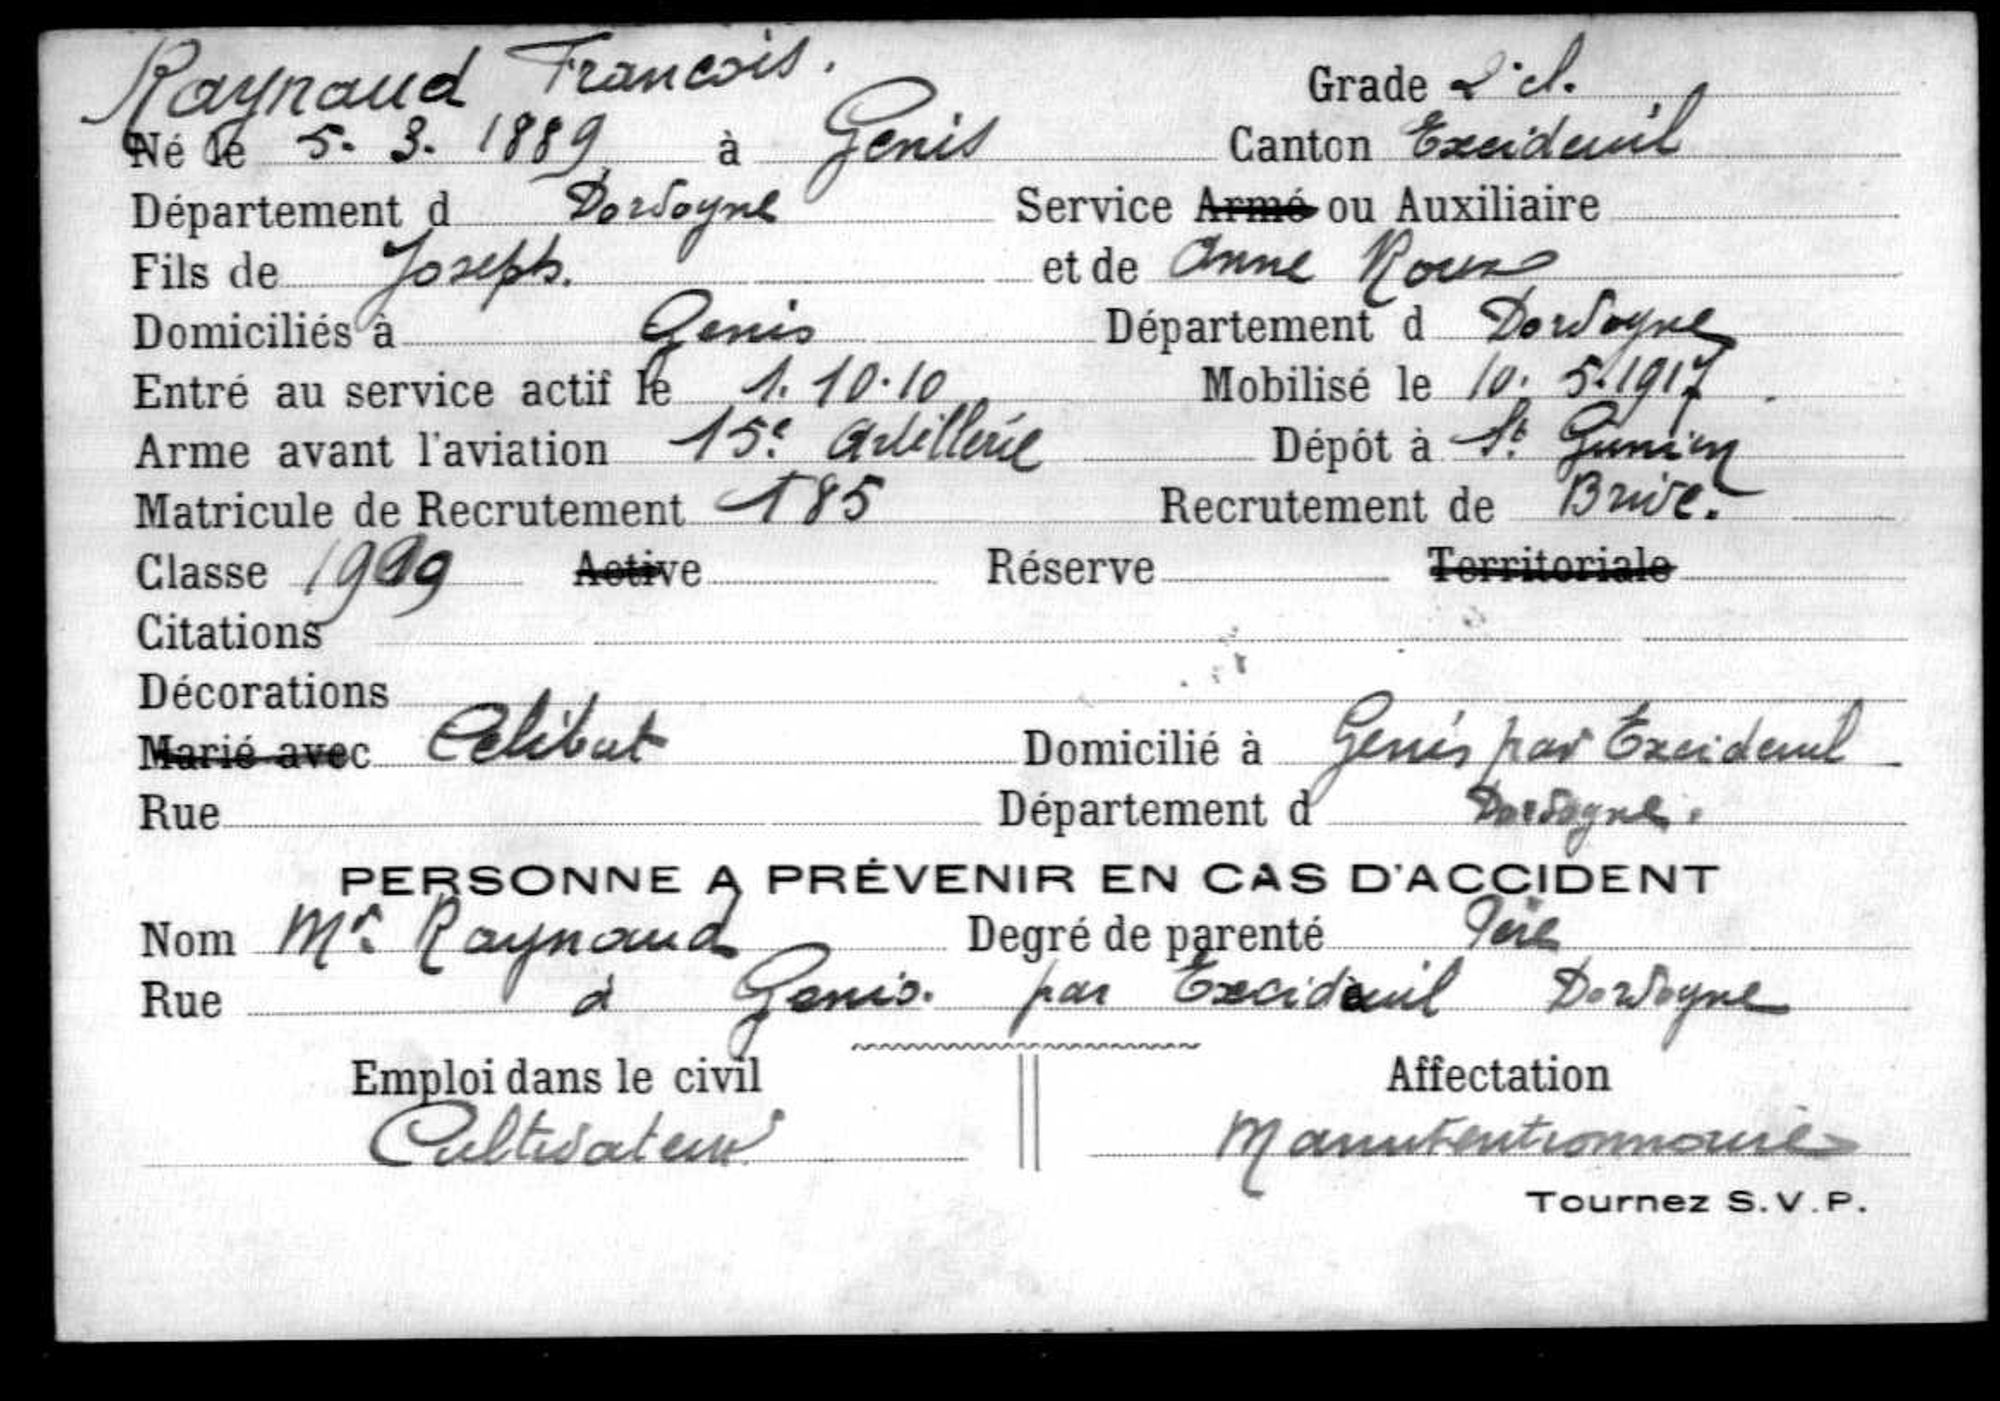 Raynaud François. Grade 2e cl.
Né le 5. 3. 1889 à Genis Canton Excideuil
Département d Dordogne Service Armé ou Auxiliaire
Fils de Joseph. et de Anne Roux
Domiciliés à Genis Département d Dordogne
Entré au service actif le 1. 10. 10 Mobilisé le 10. 5. 1917
Arme avant l'aviation 15e Artillerie Dépôt à St
Matricule de Recrutement 185 Recrutement de Brive.
Classe 1909 Active Réserve Territoriale
Citations
Décorations
Marié avec Celibat Domicilié à Genis par Excideuil
Rue Département d Dordogne.
PERSONNE A PRÉVENIR EN CAS D'ACCIDENT
Nom Mr. Raynaud Degré de parenté Père
Rue à Genis. par Excideuil Dordogne
Emploi dans le civil Affectation
Cultivateur Manutentionnaire
Tournez S.V.P.